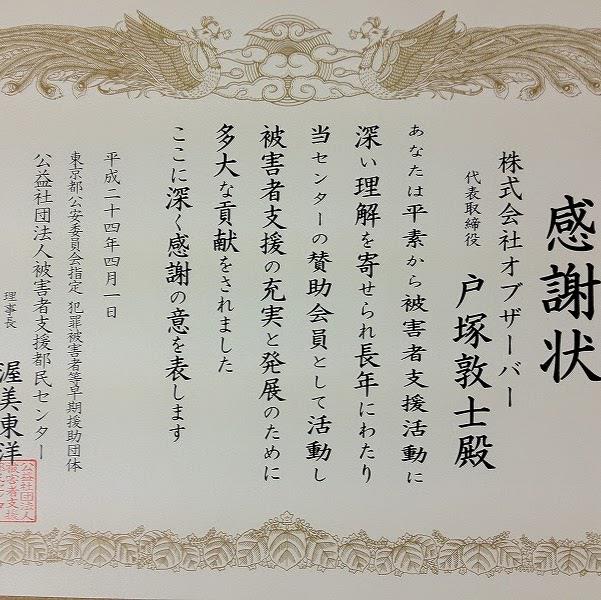 感謝状
株式会社オブザーバー
代表取締役 戸塚敦士殿
あなたは平素から被害者支援活動に
深い理解を寄せられ長年にわたり
当センターの賛助会員として活動し
被害者支援の充実と発展のために
多大な貢献をされました
ここに深く感謝の意を表します
平成二十四年四月一日
東京都公安委員会指定 犯罪被害者等早期援助団体
公益社団法人被害者支援都民センター
理事長 渥美東洋
公益社団法人
被害者支援